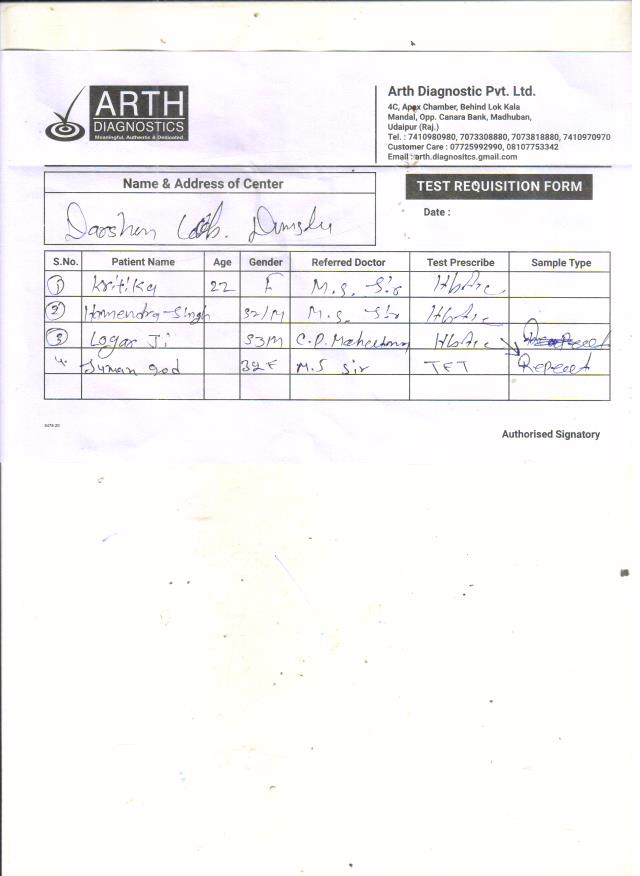 ARTH
DIAGNOSTICS
Meaningful, Authentic & Dedicated.
Arth Diagnostic Pvt. Ltd.
4C, Apex Chamber, Behind Lok Kala
Mandal, Opp. Canara Bank, Madhuban,
Udaipur (Raj.)
Tel. : 7410980980, 7073308880, 7073818880, 7410970970
Customer Care : 07725992990, 08107753342
Email : arth.diagnositcs.gmail.com
Name & Address of Center
TEST REQUISITION FORM
Darshan Lab.
Date :
S.No. Patient Name Age Gender Referred Doctor Test Prescribe Sample Type
1 Kritika 22 F M.S. Sir HbA1c
2 Homendra Singh 32/M M.S. Sir HbA1c
3 Logar Ji 53M C.P. HbA1c
4. Suman god 32 F M.S Sir TFT Repeat
Authorised Signatory